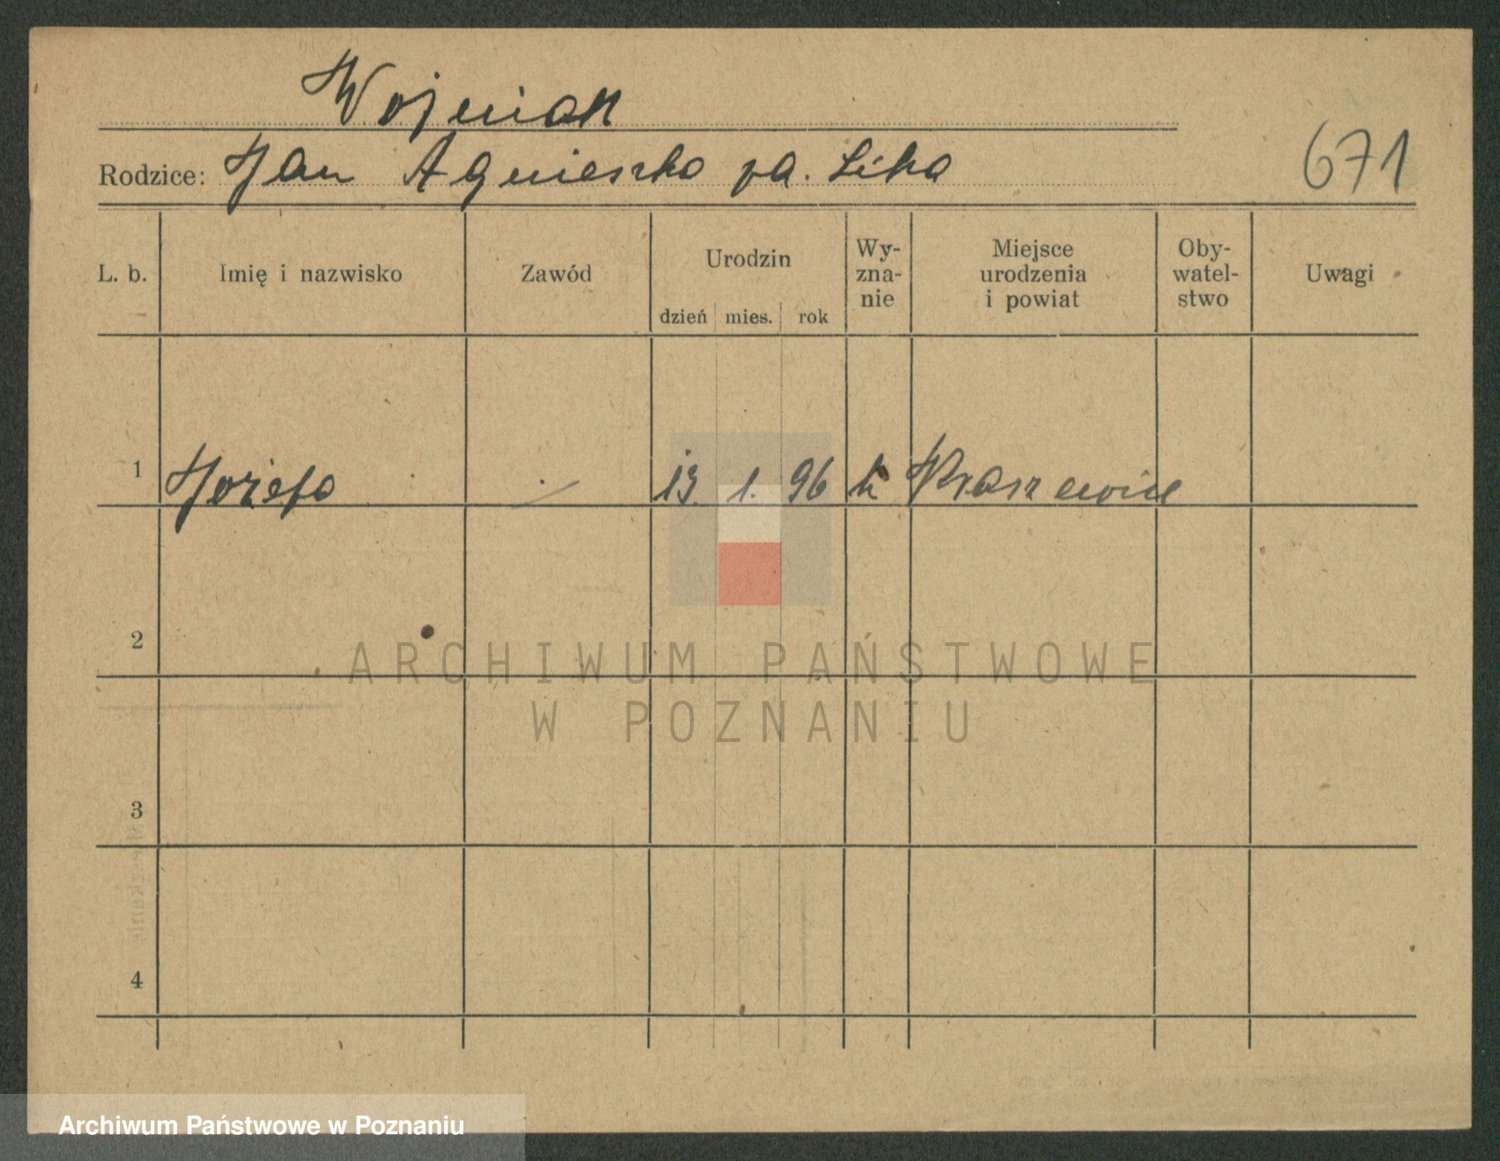 Wojciak
671
Rodzice: Jan Agnieszka
L. b. Imię i nazwisko Zawód Urodzin dzień mies. rok Wy-zna-nie Miejsce urodzenia i powiat Oby-watel-stwo Uwagi
1 Józefa 13. 1. 96 k Kraszewice
2
ARCHIWUM PAŃSTWOWE
W POZNANIU
3
4
Archiwum Państwowe w Poznaniu